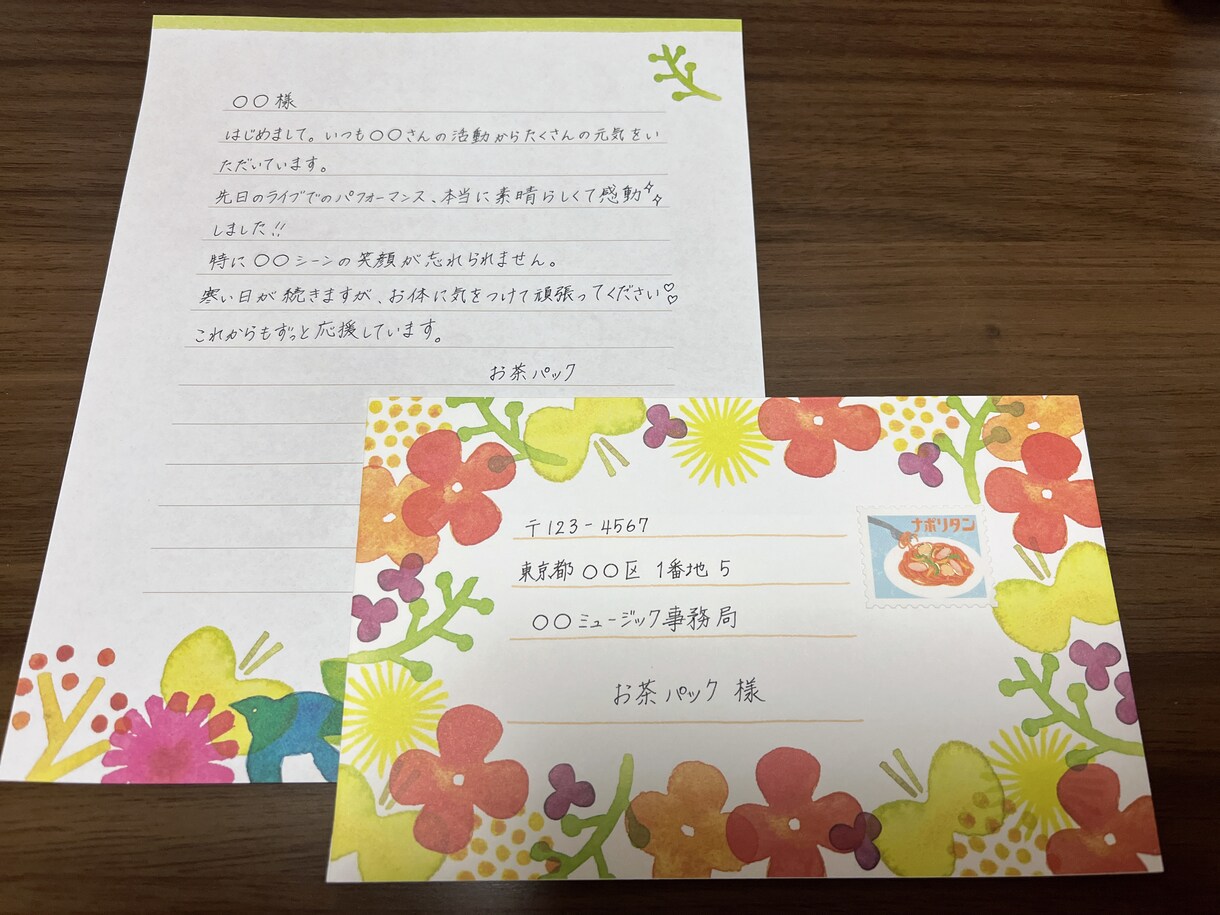 ○○様
はじめまして。いつも○○さんの活動からたくさんの元気をい
ただいています。
先日のライブでのパフォーマンス、本当に素晴らしくて感動
しました!!
特に○○シーンの笑顔が忘れられません。
寒い日が続きますが、お体に気をつけて頑張ってください♡♡
これからもずっと応援しています。
お茶パック
〒123-4567
東京都○○区 1番地 5
○○ミュージック事務局
お茶パック 様
ナポリタン